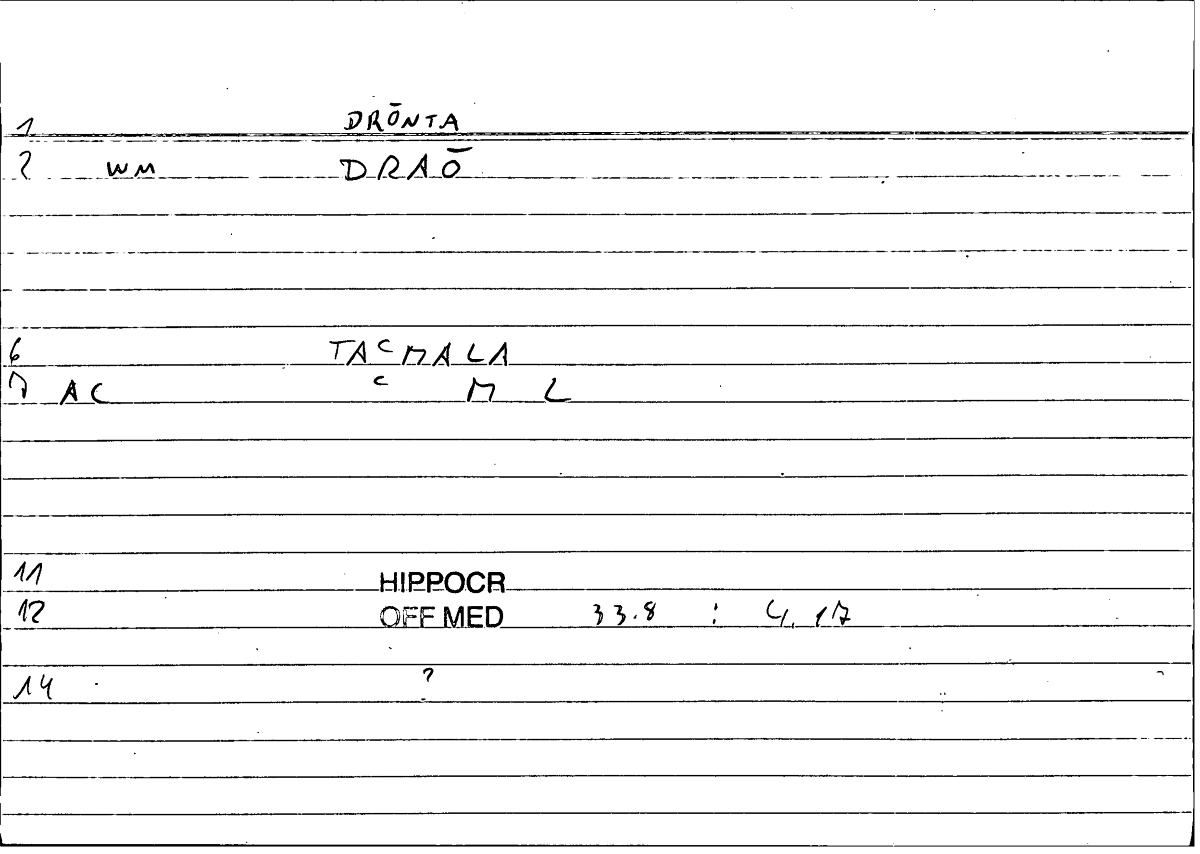 1 DRŌNTA
2 WM DRAŌ
6 TACMALA
7 AC C M L
11 HIPPOCR
12 OFF MED 33.8 : 4,17
14 ?